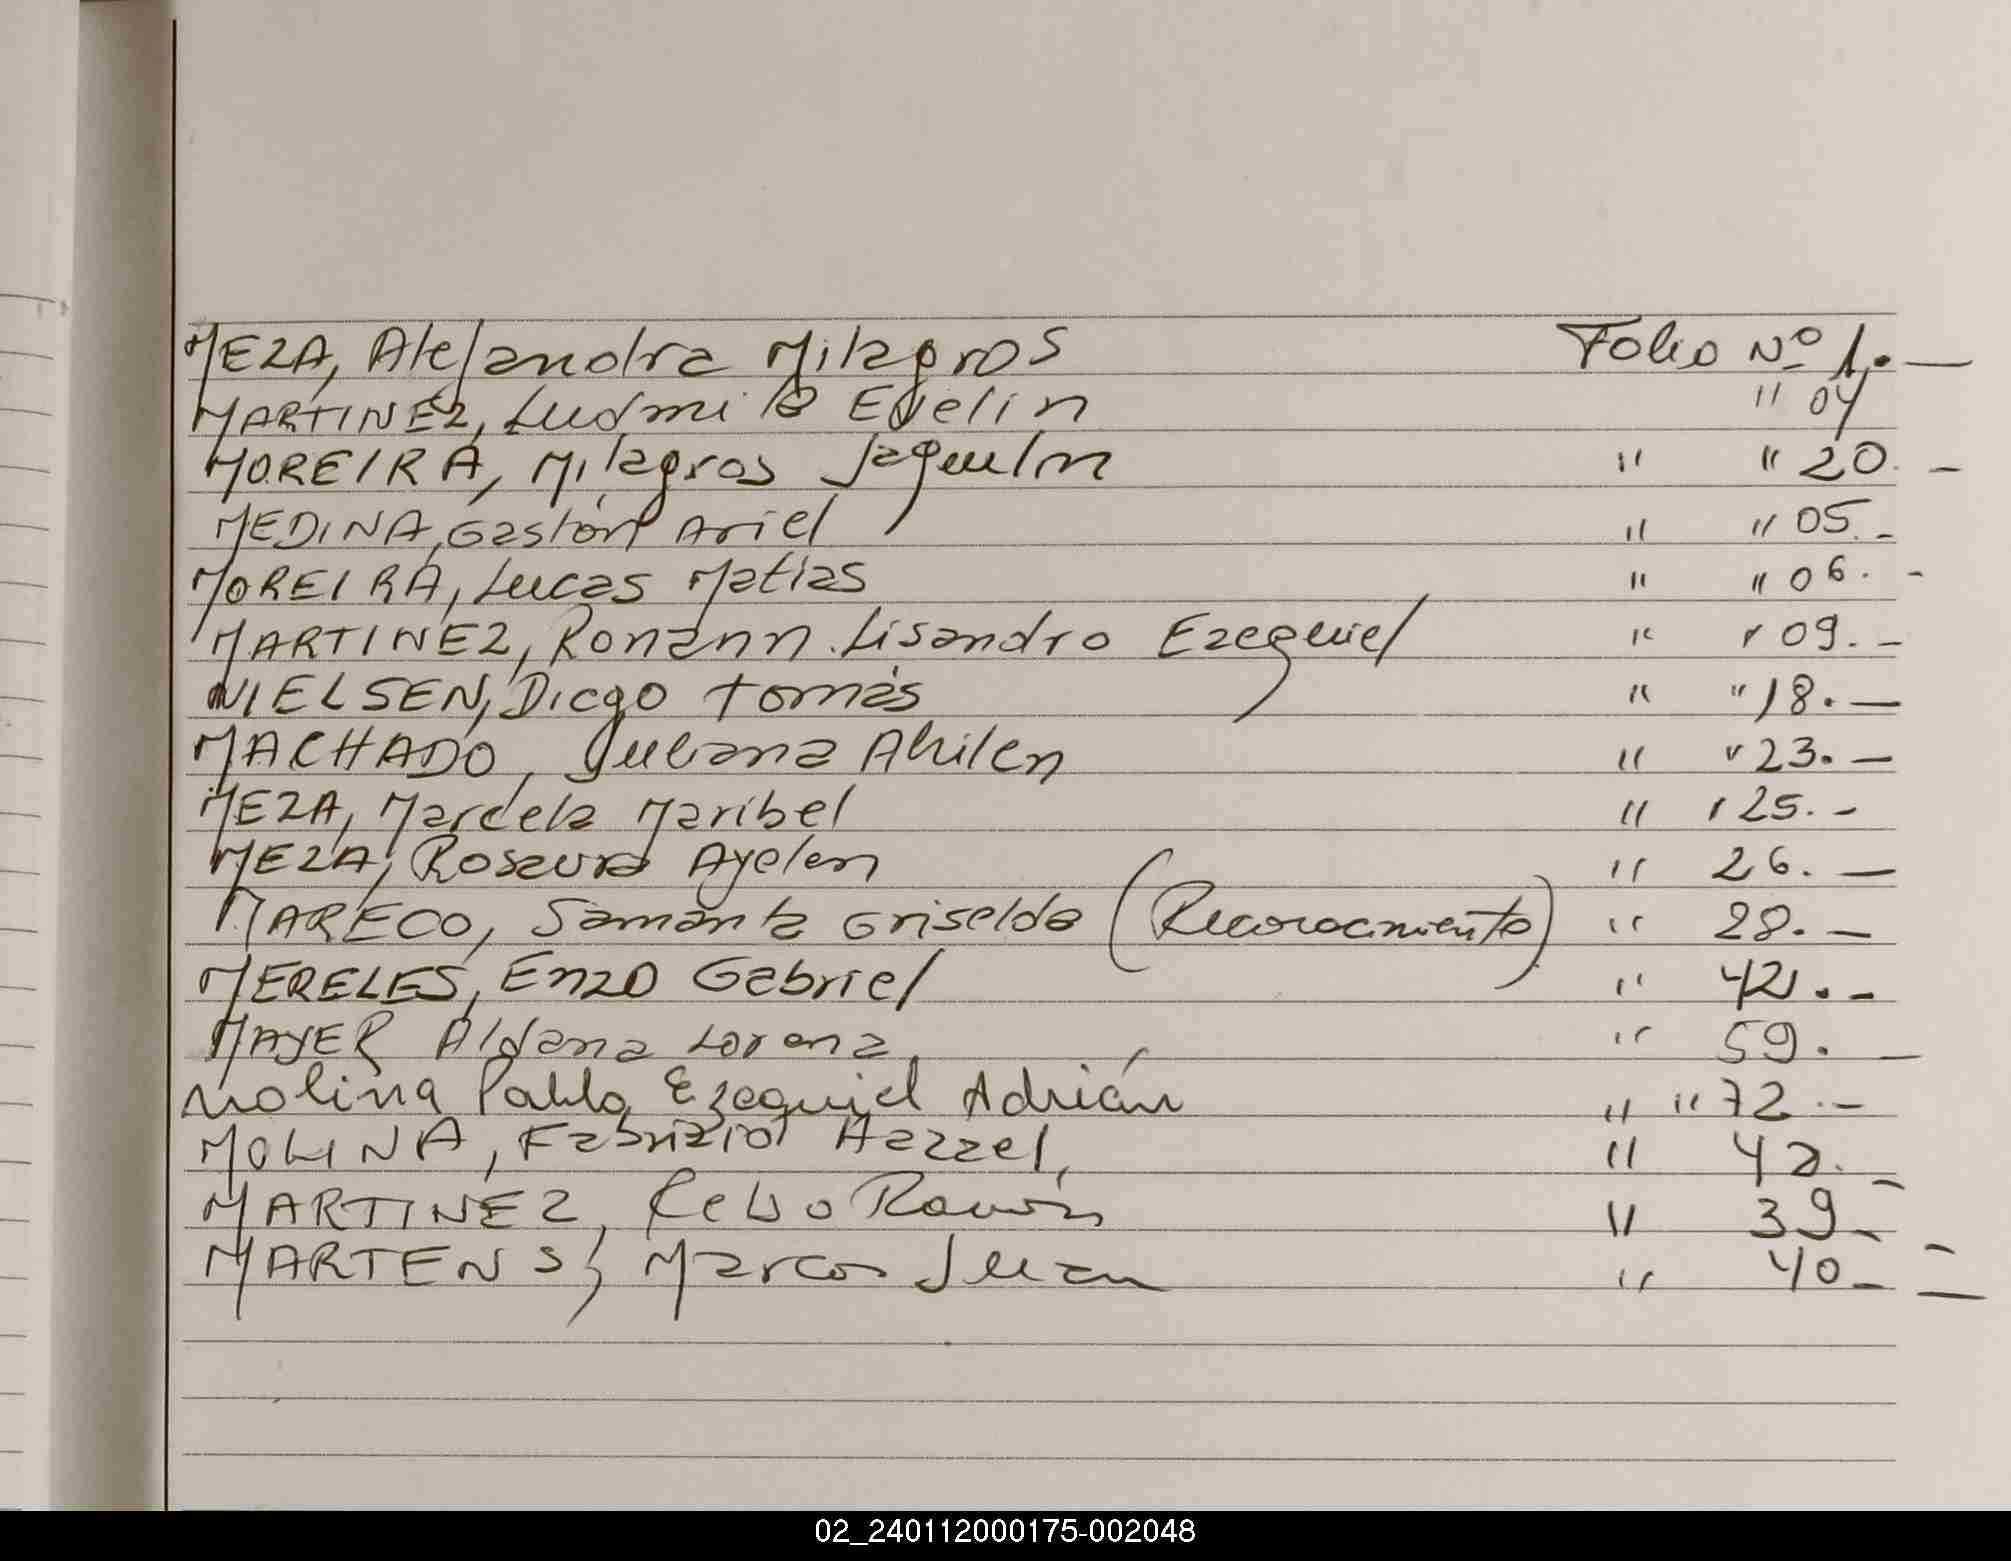 MEZA, Alejandra Milagros Folio Nº 1.—
MARTINEZ, Ludmila Evelin " 04
MOREIRA, Milagros Jaquelin " " 20. –
MEDINA, Gastón Ariel " " 05. –
MOREIRA, Lucas Matias " " 06. –
MARTINEZ, Ronann Lisandro Ezequiel " " 09. –
NIELSEN, Diego Tomás " " 18. —
MACHADO, Juliana Ahilen " " 23. —
MEZA, Marcela Maribel " " 25. –
MEZA, Rosaura Ayelen " 26. —
MARECO, Samanta Griselda (Reconocimiento) " 28. —
MERELES, Enzo Gabriel " 42. –
MAYER Aldana Lorena " 59. —
Molina Pablo Ezequiel Adrián " " 72. –
MOLINA, Fabrizio Hazzel, " 42. –
MARTINEZ, Ramón " 39 –
MARTENS, Marcos Juan " 40 –
02_240112000175-002048